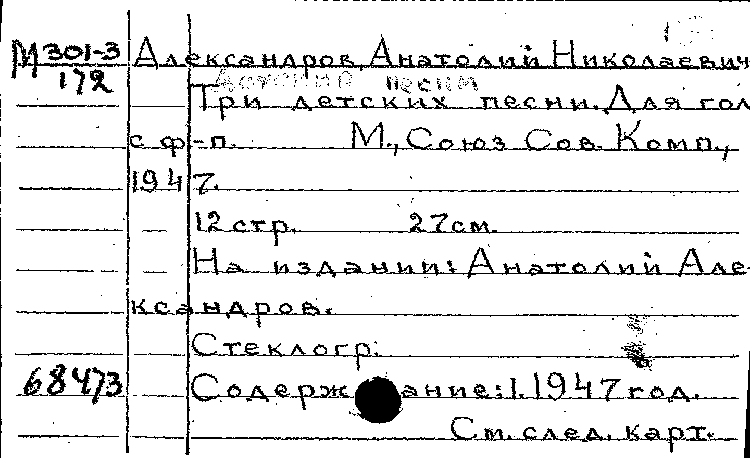 М 301-3 Александров, Анатолий Николаевич
172 Детские песни
Три детских песни. Для гол
с ф-п. М., Союз Сов. Комп.,
1947.
12 стр. 27 см.
На издании: Анатолий Але-
ксандров.
Стеклогр.
68473 Содержание: 1. 1947 год.
См. след. карт.